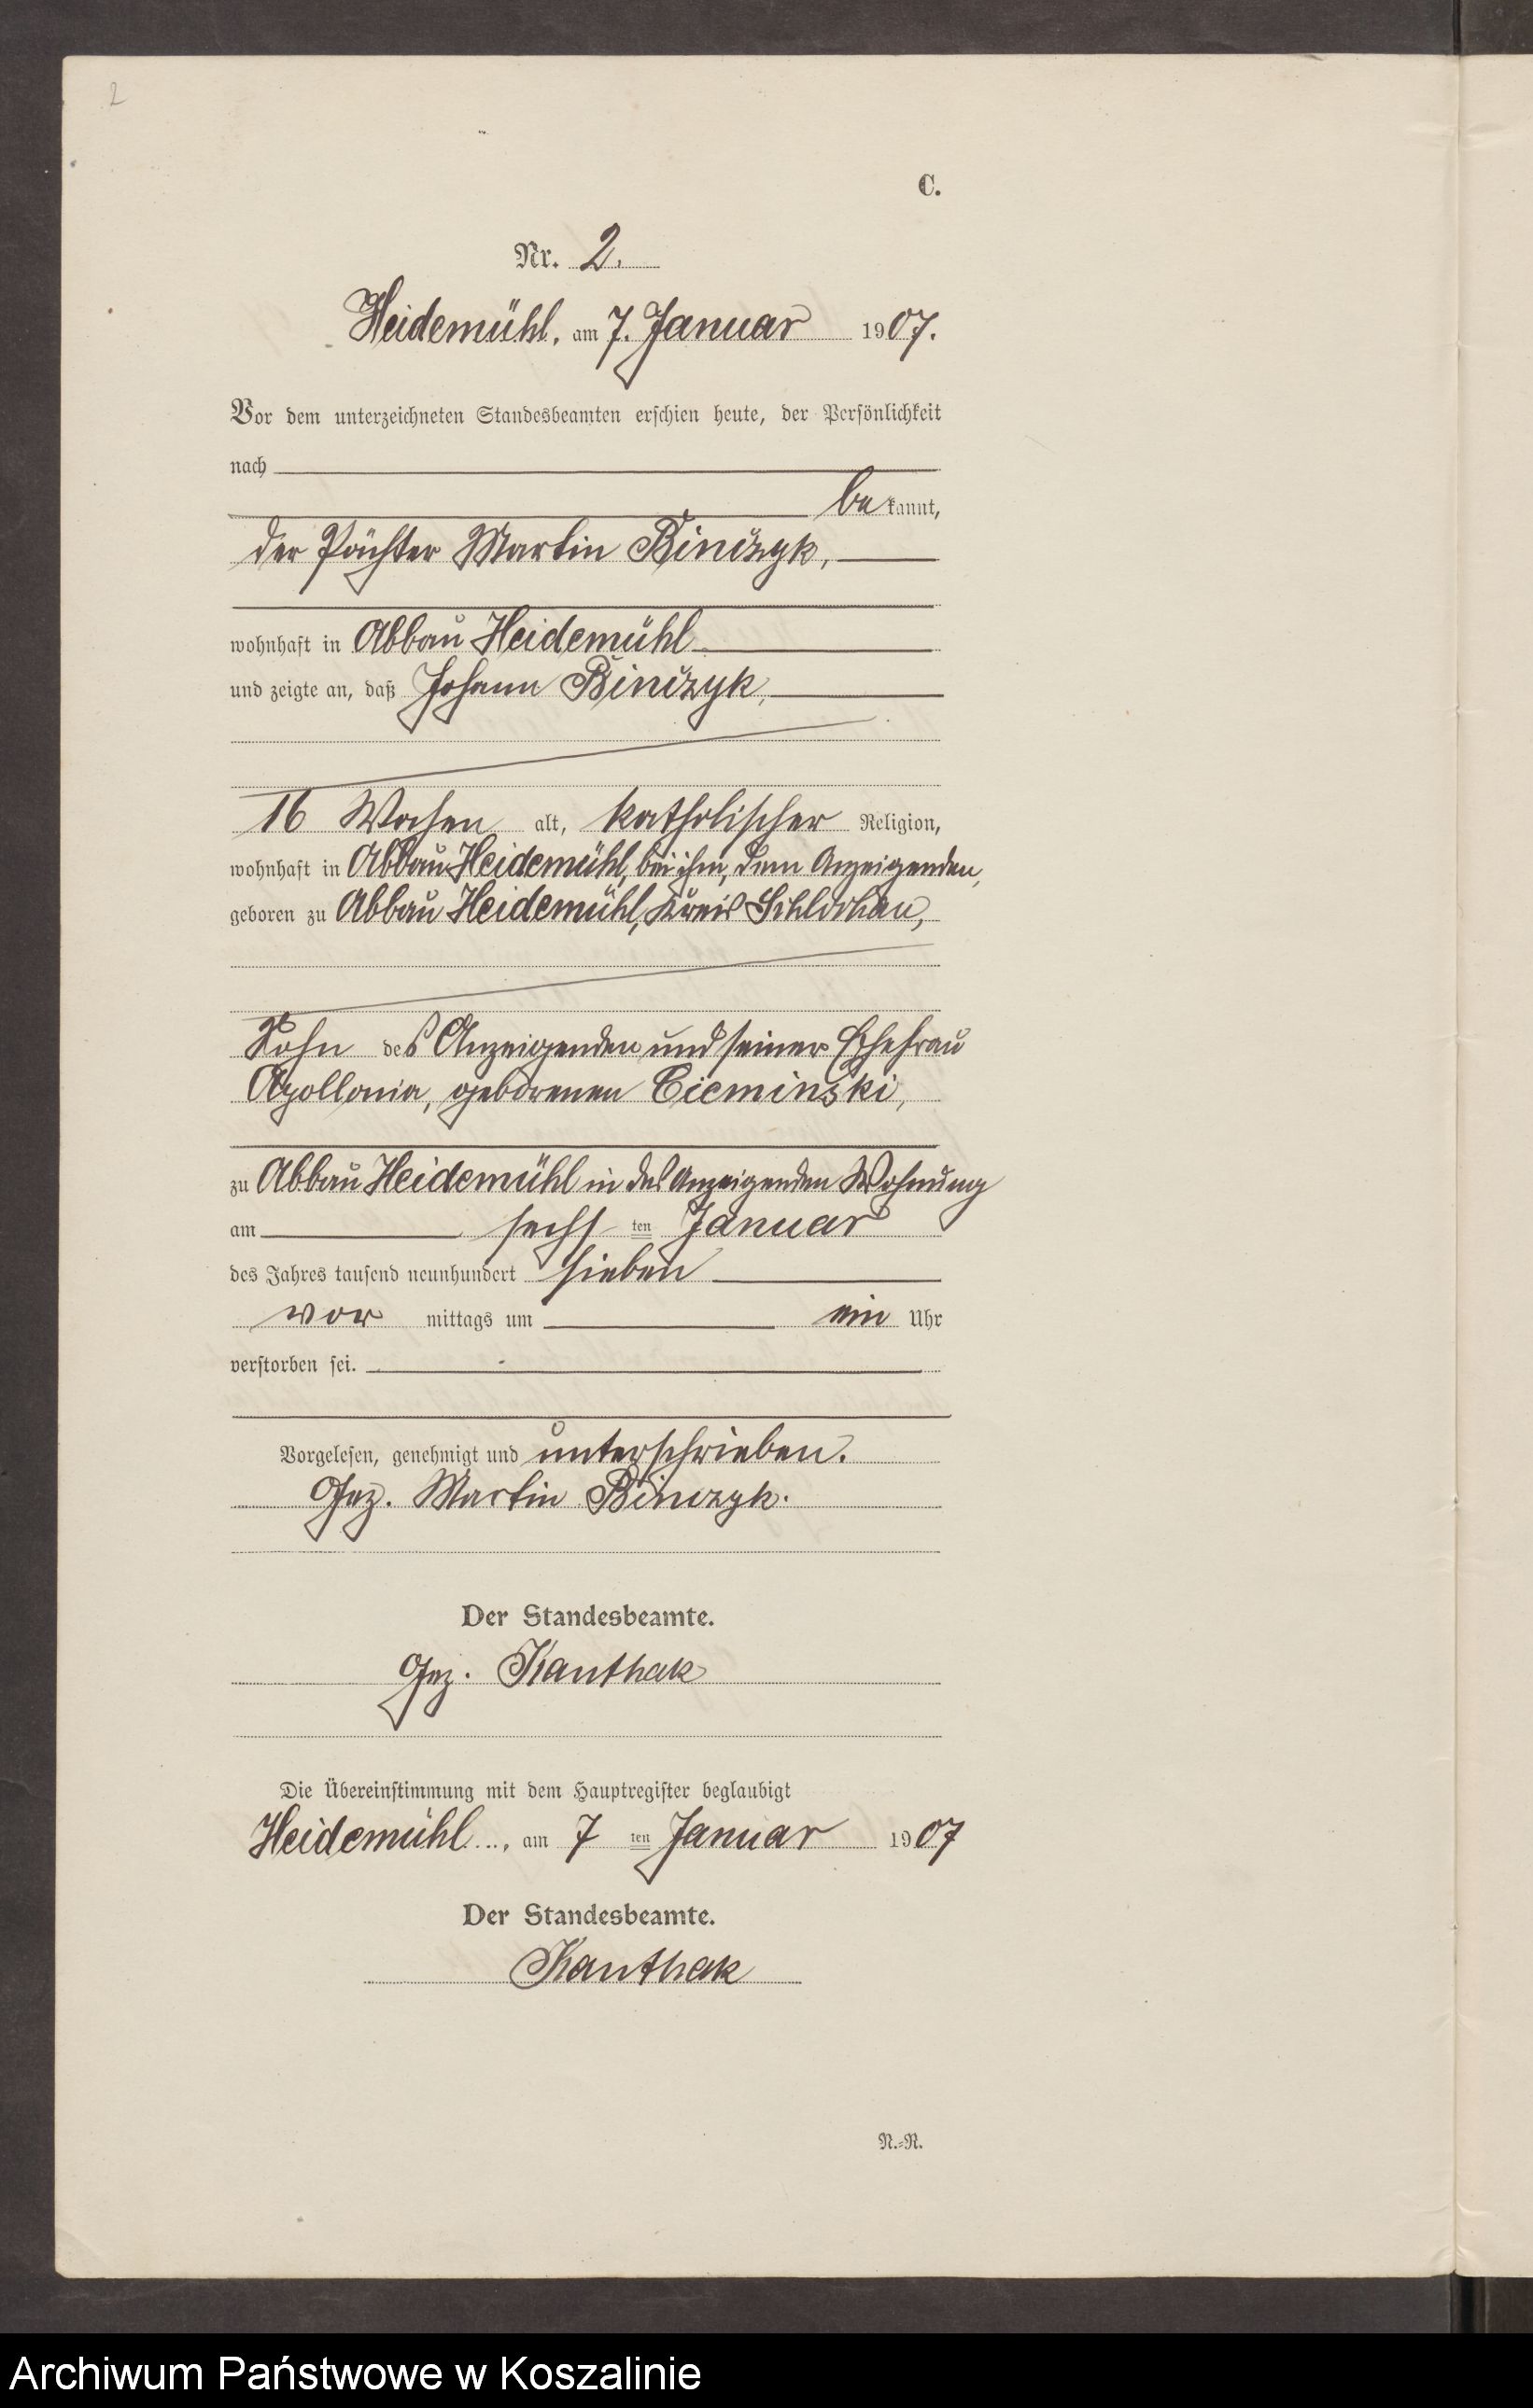 2
C.
Nr. 2.
Heidemühl, am 7. Januar 1907.
Vor dem unterzeichneten Standesbeamten erschien heute, der Persönlichkeit
nach
bekannt,
der Pächter Martin Binczyk,
wohnhaft in Abbau Heidemühl
und zeigte an, daß Johann Binczyk,
16 Wochen alt, katholischer Religion,
wohnhaft in Abbau Heidemühl, bei ihm, dem Anzeigenden,
geboren zu Abbau Heidemühl, Kreis Schlochau,
Sohn des Anzeigenden und seiner Ehefrau
Apollonia, geborenen Cieminski,
zu Abbau Heidemühl in des Anzeigenden Wohnung
am sechsten Januar
des Jahres tausend neunhundert sieben
vormittags um ein Uhr
verstorben sei.
Vorgelesen, genehmigt und unterschrieben.
Gez. Martin Binczyk.
Der Standesbeamte.
Gez. Kanthak
Die Übereinstimmung mit dem Hauptregister beglaubigt
Heidemühl, am 7ten Januar 1907
Der Standesbeamte.
Kanthak
N.-R.
Archiwum Państwowe w Koszalinie